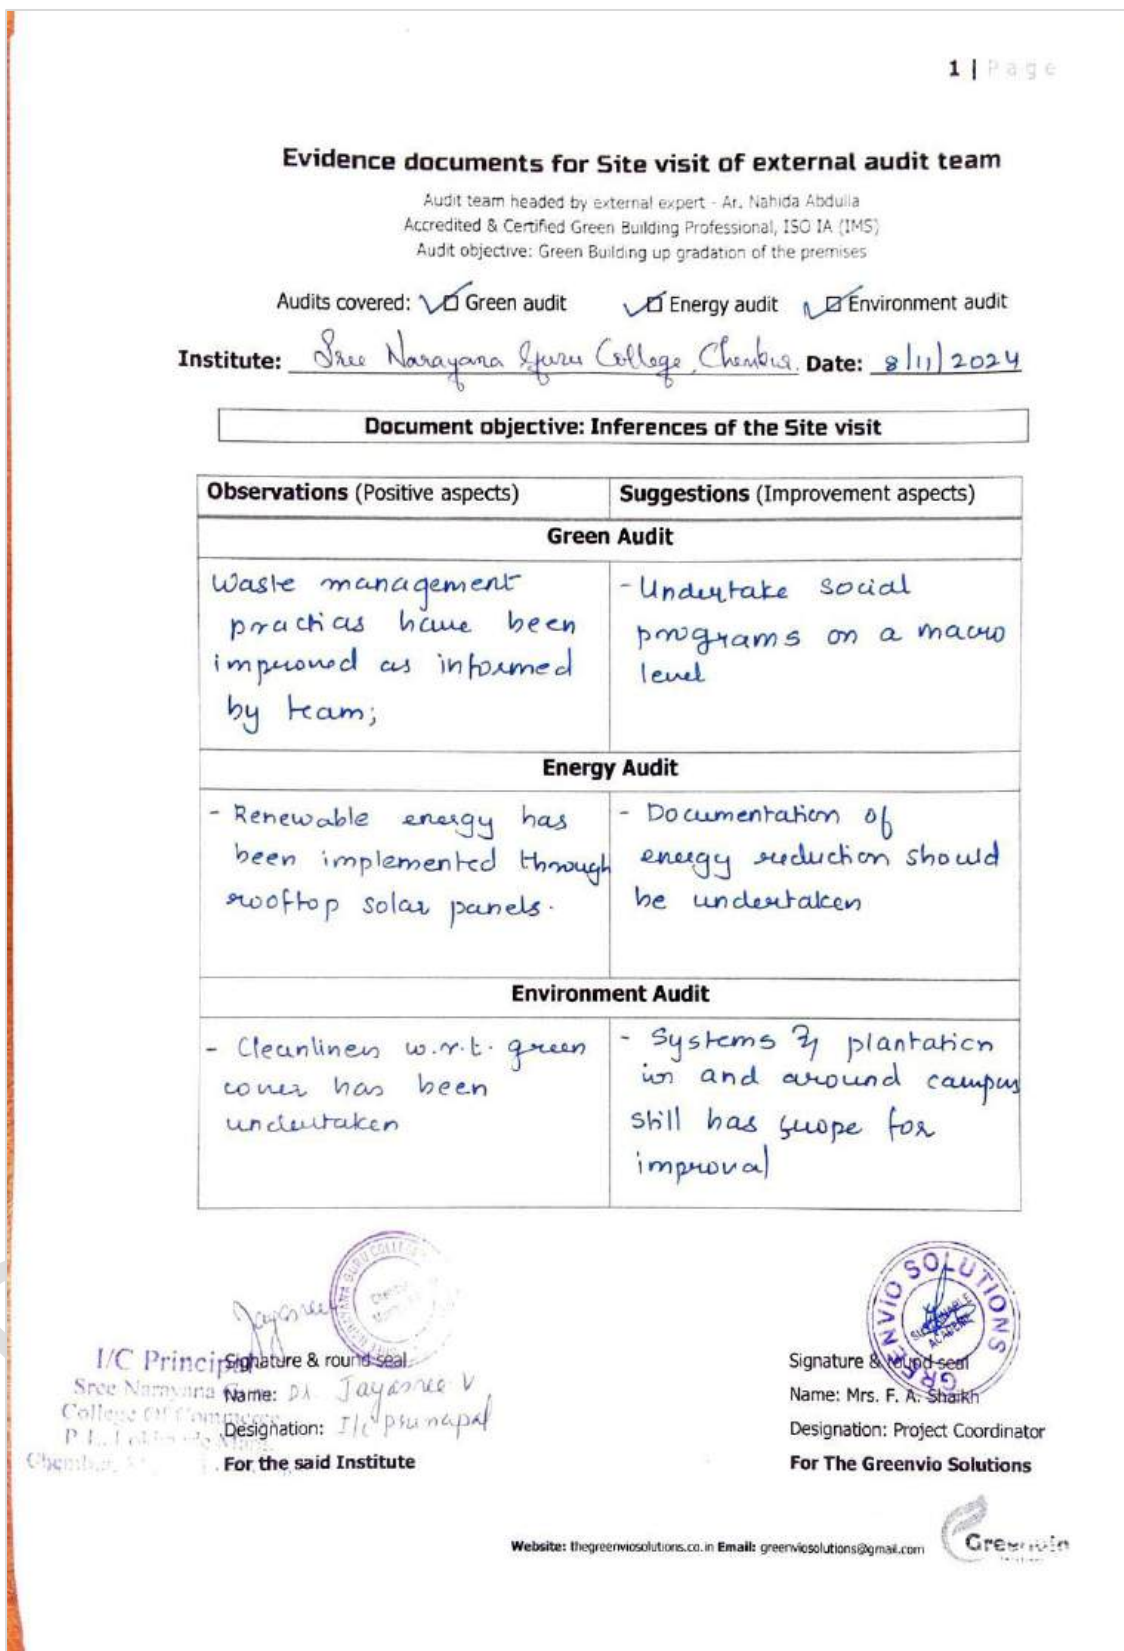 1 | Page
Evidence documents for Site visit of external audit team
Audit team headed by external expert - Ar. Nahida Abdulla
Accredited & Certified Green Building Professional, ISO IA (IMS)
Audit objective: Green Building up gradation of the premises
Audits covered: Green audit Energy audit Environment audit
Institute: Sree Narayana Guru College, Chembur. Date: 8/11/2024
Document objective: Inferences of the Site visit
Observations (Positive aspects) Suggestions (Improvement aspects)
Green Audit
Waste management
practias have been
improved as informed
by team;
- Undertake social
programs on a macro
level
Energy Audit
- Renewable energy has
been implemented through
rooftop solar panels.
- Documentation of
energy reduction should
be undertaken
Environment Audit
- Cleanliness w.r.t. green
cover has been
undertaken
- Systems of plantation
in and around campus
still has scope for
improval
SREE NARAYANA GURU COLLEGE
Jayasree
I/C Principal
Sree Narayana
College Of Commerce
Chembur,
Signature & round seal
Name: Dr. Jayasree V
Designation: I/c Principal
For the said Institute
GREENVIO SOLUTIONS
SUSTAINABLE
ACADEMY
Signature & round seal
Name: Mrs. F. A. Shaikh
Designation: Project Coordinator
For The Greenvio Solutions
Website: thegreenviosolutions.co.in Email: greenviosolutions@gmail.com
Greenvio